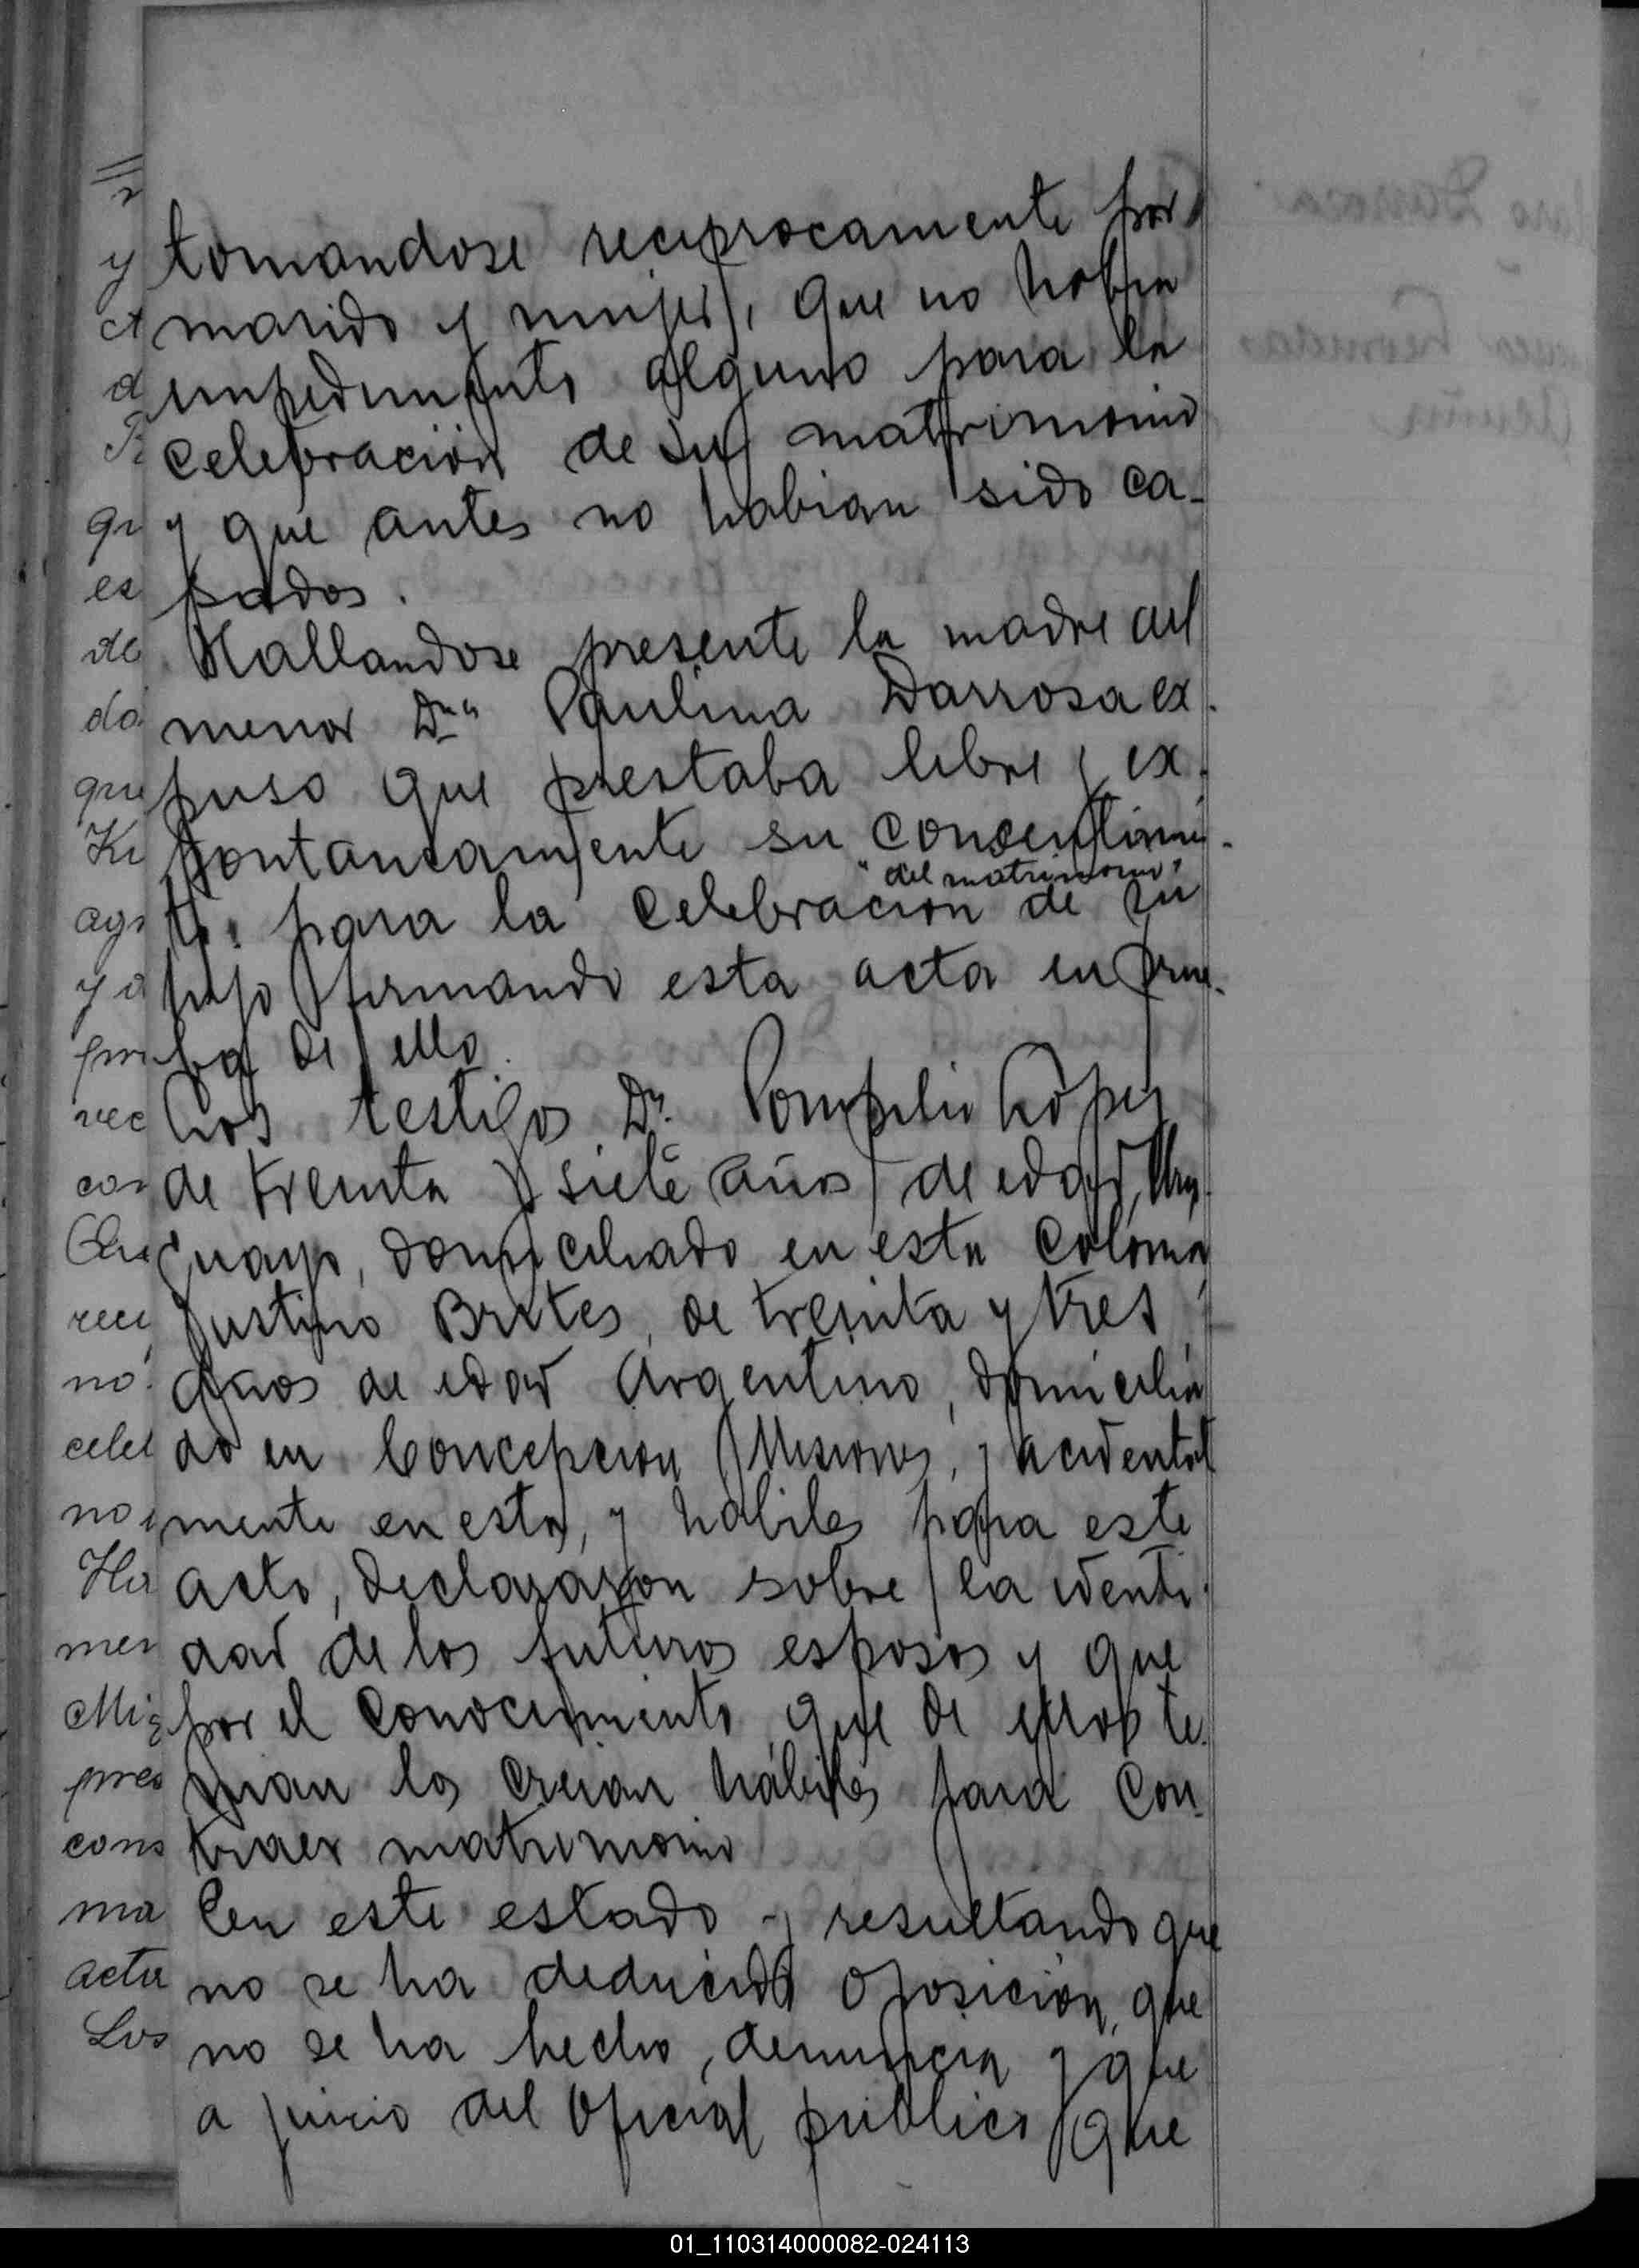 tomandose reciprocamente por
marido y mujer, que no habia
impedimento alguno para la
celebración de su matrimonio
y que antes no habian sido ca-
sados.
Hallandose presente la madre del
menor Dna Paulina Darrosa ex-
puso que prestaba libre y ex-
pontaneamente su consentimi-
"del matrimonio"
to para la celebración de su
hijo firmando esta acta en prue-
ba de ello.
Los testigos Dn. Pompilio López
de treinta y siete años de edad, Uru-
guayo, domiciliado en esta Colonia
Justino Brites, de treinta y tres
años de edad Argentino, domicilia
do en Concepcion Misiones, y acidental
mente en esta, y habiles para este
acto, declararon sobre la identi-
dad de los futuros esposos y que
por el conocimiento que de ellos te-
nian los creian hábiles para con-
traer matrimonio
En este estado y resultando que
no se ha deducido oposición, que
no se ha hecho denuncia y que
a juicio del oficial publico que
01_110314000082-024113